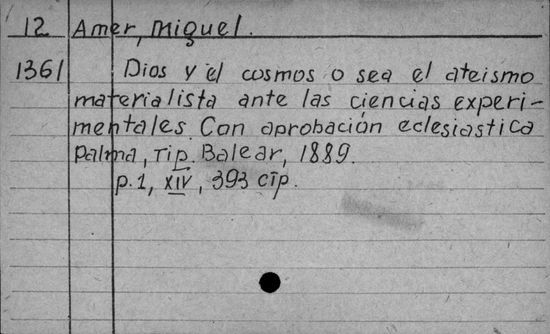 12 Amer, Miguel.
1361 Dios y el cosmos o sea el ateismo
materialista ante las ciencias experi-
mentales. Con aprobación eclesiastica
Palma, Tip. Balear, 1889.
p.1, XIV, 393 cīp.